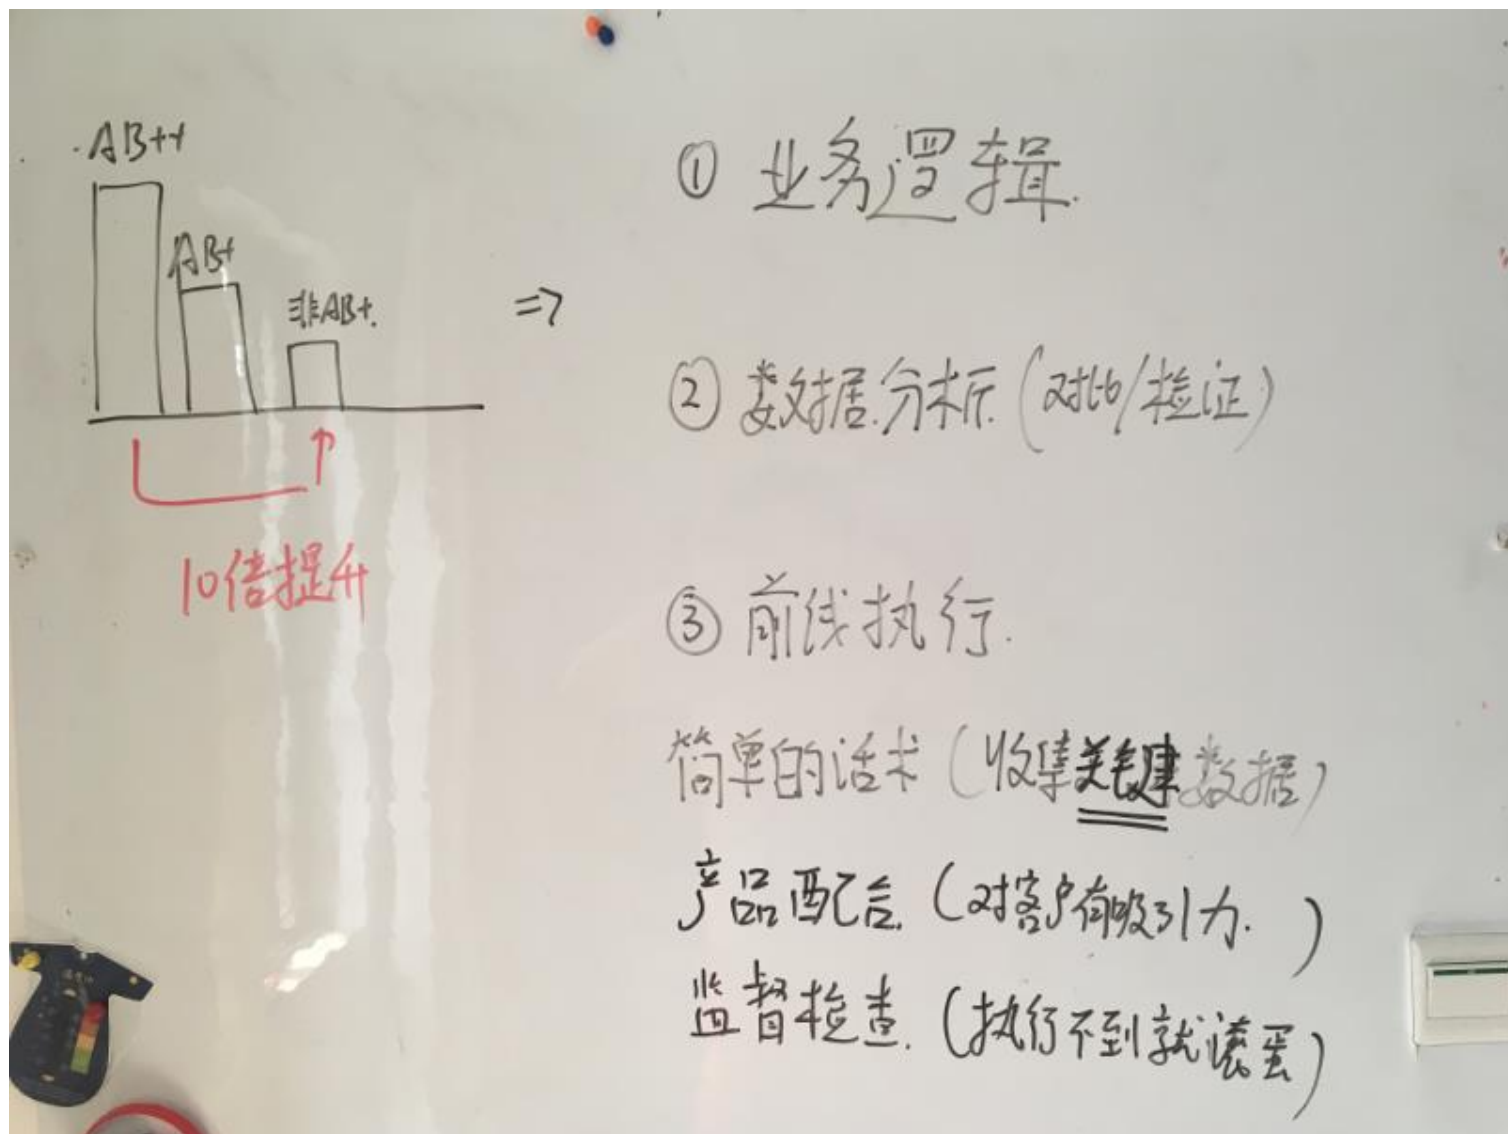 AB++
AB+
非AB+.
=>
10倍提升
① 业务逻辑.
② 数据分析(对比/检证)
③ 前线执行.
简单的话术(收集关键数据)
产品配合.(对客户有吸引力.)
监督检查.(执行不到就滚蛋)